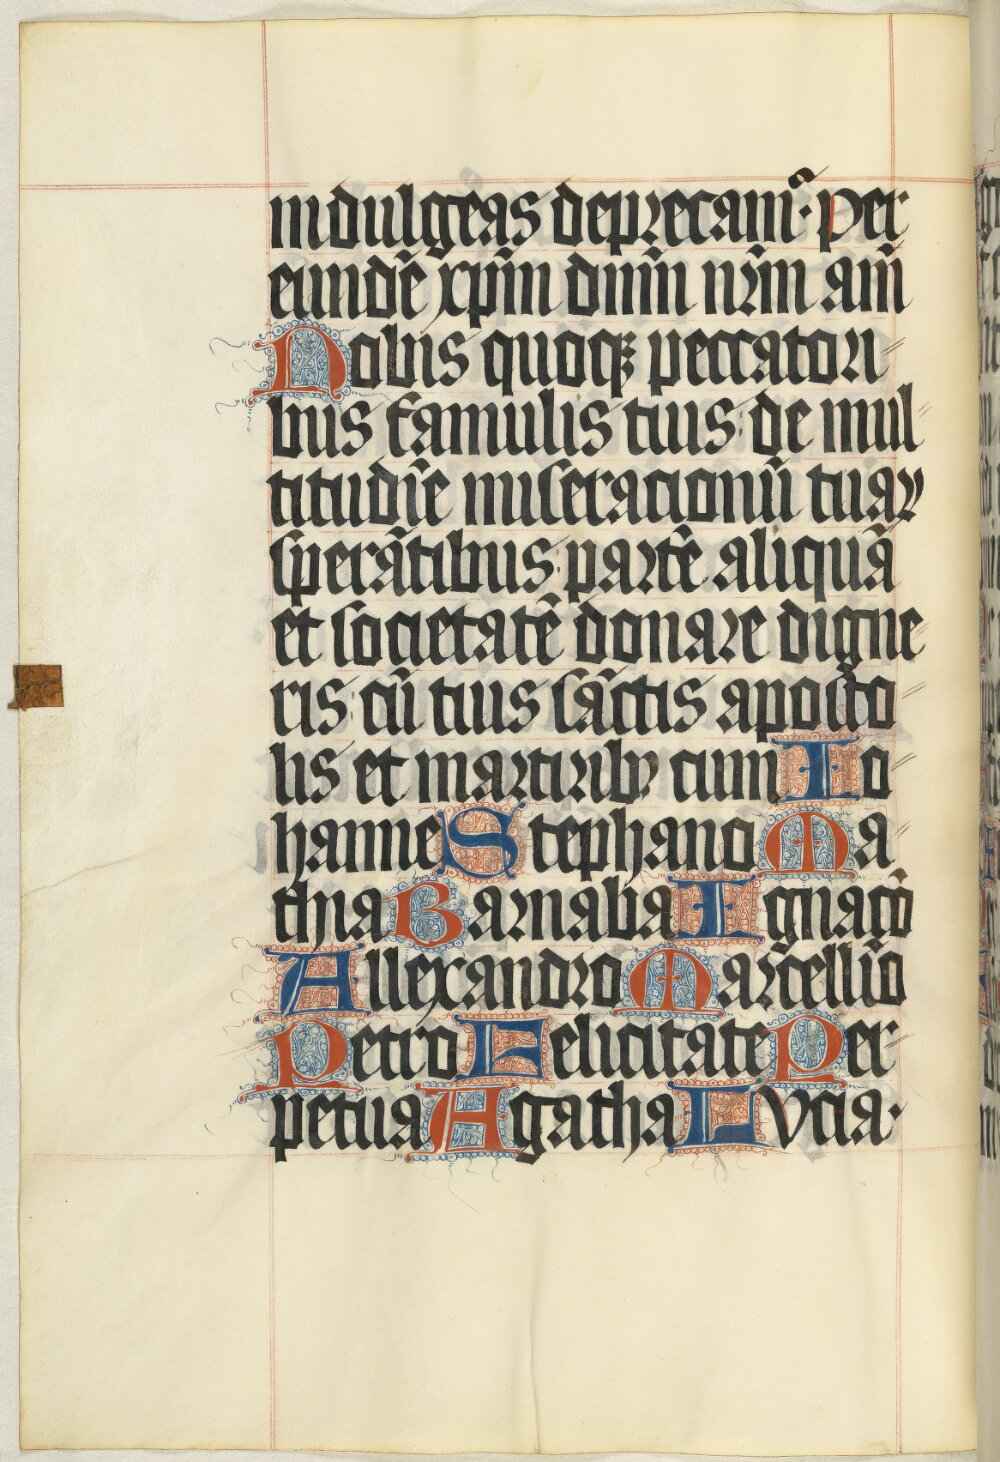 indulgeas deprecam᷒· Per
eundē xp̄m dn̄m nr̄m am̄
Nobis quoqꝫ peccatori
bus famulis tuis: de mul
titudīe miseracionū tuaꝝ
sperātibus: partē aliquā
et societatē donare digne
ris: cū tuis sāctis aposto
lis et martiribꝰ cum Io
hanne Stephano Ma
thia Barnaba Ignacō
Allexandro Marcellīo
Petro Felicitate Per
petua Agatha Lvcia·